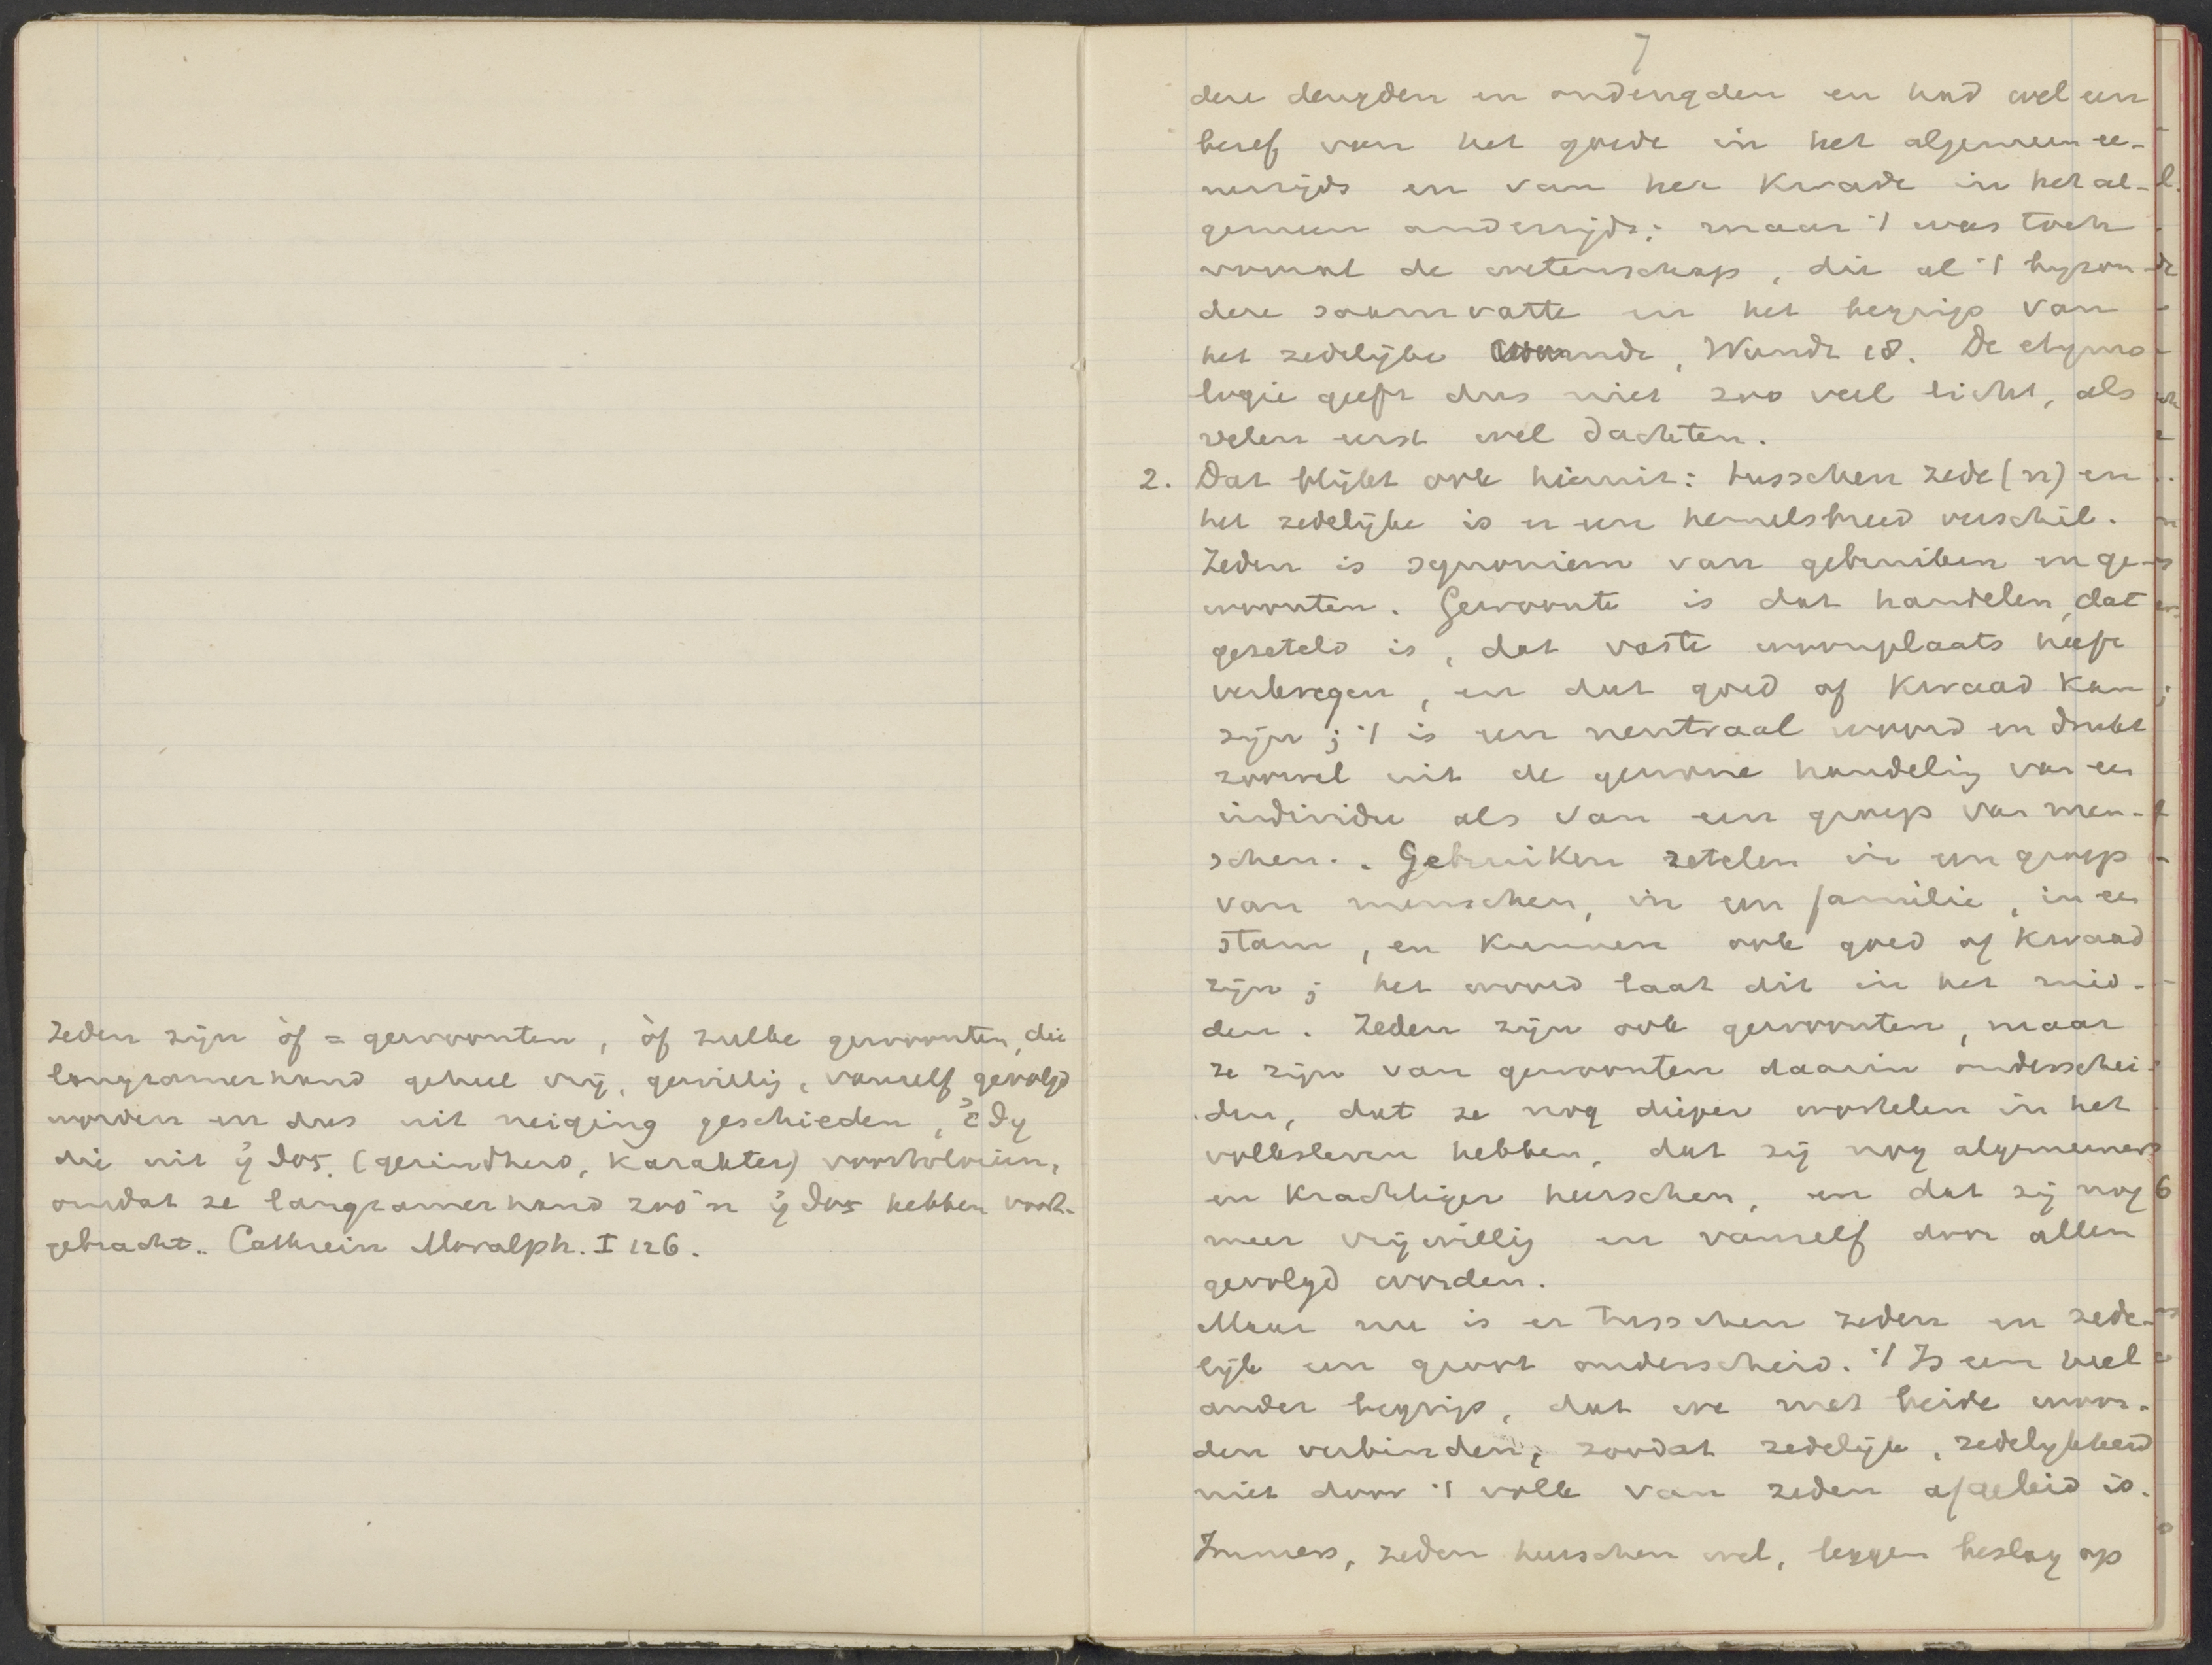 Zeden zijn òf = gewoonten, òf zulke gewoonten, die
langzamerhand geheel vrij, gewillig, vanzelf gevolgd
worden en dus uit neiging geschieden, ἔθη
die uit ἦθος (gezindheid, karakter) voortvloeien,
omdat ze langzamerhand zoo'n ἦθος hebben voort-
gebracht. Cathrein Moralph. I 126.
7
dere deugden en ondeugden en had wel een
besef van het goede in het algemeen ee-
nerzijds en van het kwade in het al-
gemeen anderzijds; maar 't was toch
vooral de wetenschap, die al 't byzon-
dere saamvatte en het begrip van
het zedelijke vormde, Wundt 18. De etymo-
logie geeft dus niet zoo veel licht, als
velen eerst wel dachten.
2. Dat blijkt ook hieruit: tusschen zede(n) en
het zedelijke is er een hemelsbreed verschil.
Zeden is synoniem van gebruiken en ge-
woonten. Gewoonte is dat handelen, dat
gezeteld is, dat vaste woonplaats heeft
verkregen, en dat goed of kwaad kan
zijn; 't is een neutraal woord en drukt
zoowel uit de gewone handelig van een
individu als van een groep van men-
schen. Gebruiken zetelen in een groep
van menschen, in een familie, in een
stam, en kunnen ook goed of kwaad
zijn; het woord laat dit in het mid-
den. Zeden zijn ook gewoonten, maar
ze zijn van gewoonten daarin onderschei-
den, dat ze nog dieper wortelen in het
volksleven hebben, dat zij nog algemeener
en krachtiger heerschen, en dat zij nog
meer vrijwillig en vanzelf door allen
gevolgd worden.
Maar nu is er tusschen zeden en zede-
lijk een groot onderscheid. 't Is een heel
ander begrip, dat we met beide woor-
den verbinden, zoodat zedelijk, zedelykheid
niet door 't volk van zeden afgeleid is.
Immers, zeden heerschen wel, leggen beslag op